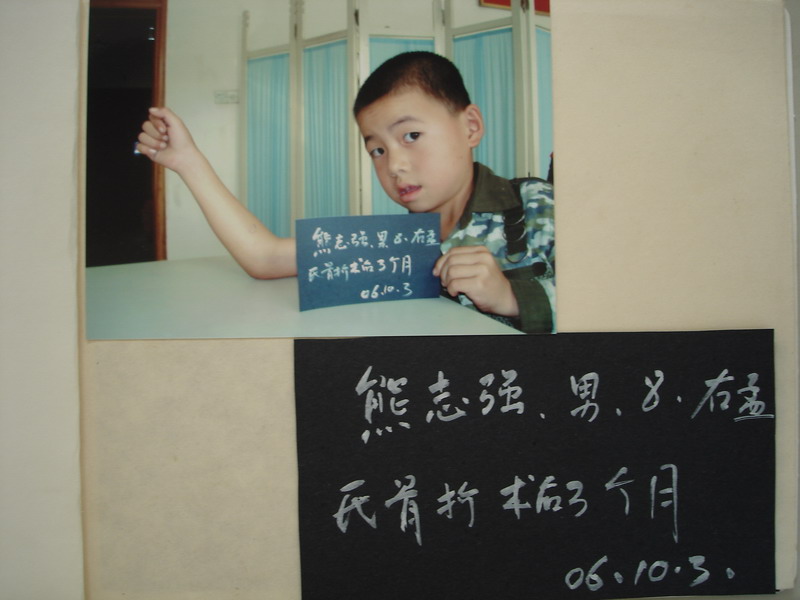 熊志强、男8、右孟
氏骨折术后3个月
06.10.3
熊志强、男、8、右孟
氏骨折术后3个月
06.10.3.